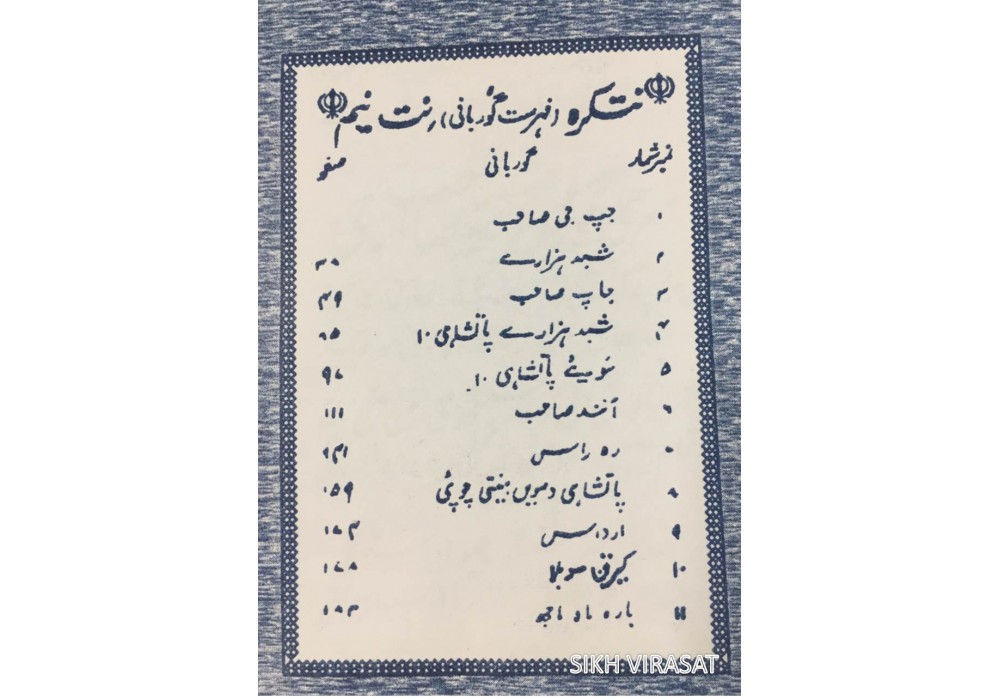 نتکرہ (فہرست گوربانی) نِت نیم
نمبر شمار گوربانی صفحہ
۱ جپ جی صاحب
۲ شبد ہزارے
۳ جاپ صاحب ۴۹
۴ شبد ہزارے پاتشاہی ۱۰
۵ پاتشاہی ۱۰
۶ آنند صاحب ۱۱۱
۷ رہ راس ۱۴۱
۸ پاتشاہی دسویں بینتی چوپئی ۱۵۹
۹ ارداس
۱۰ کیرتن سوہلا
۱۱ بارہ ماہ مانجھ
SIKH VIRASAT